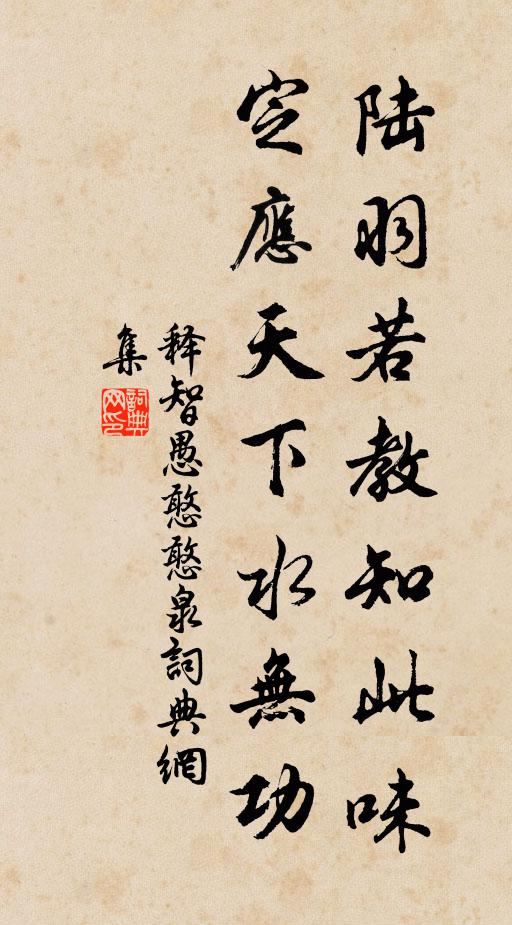 陆羽若教知此味
定應天下水無功
释智愚憨憨泉詞典網
集
詞典网印